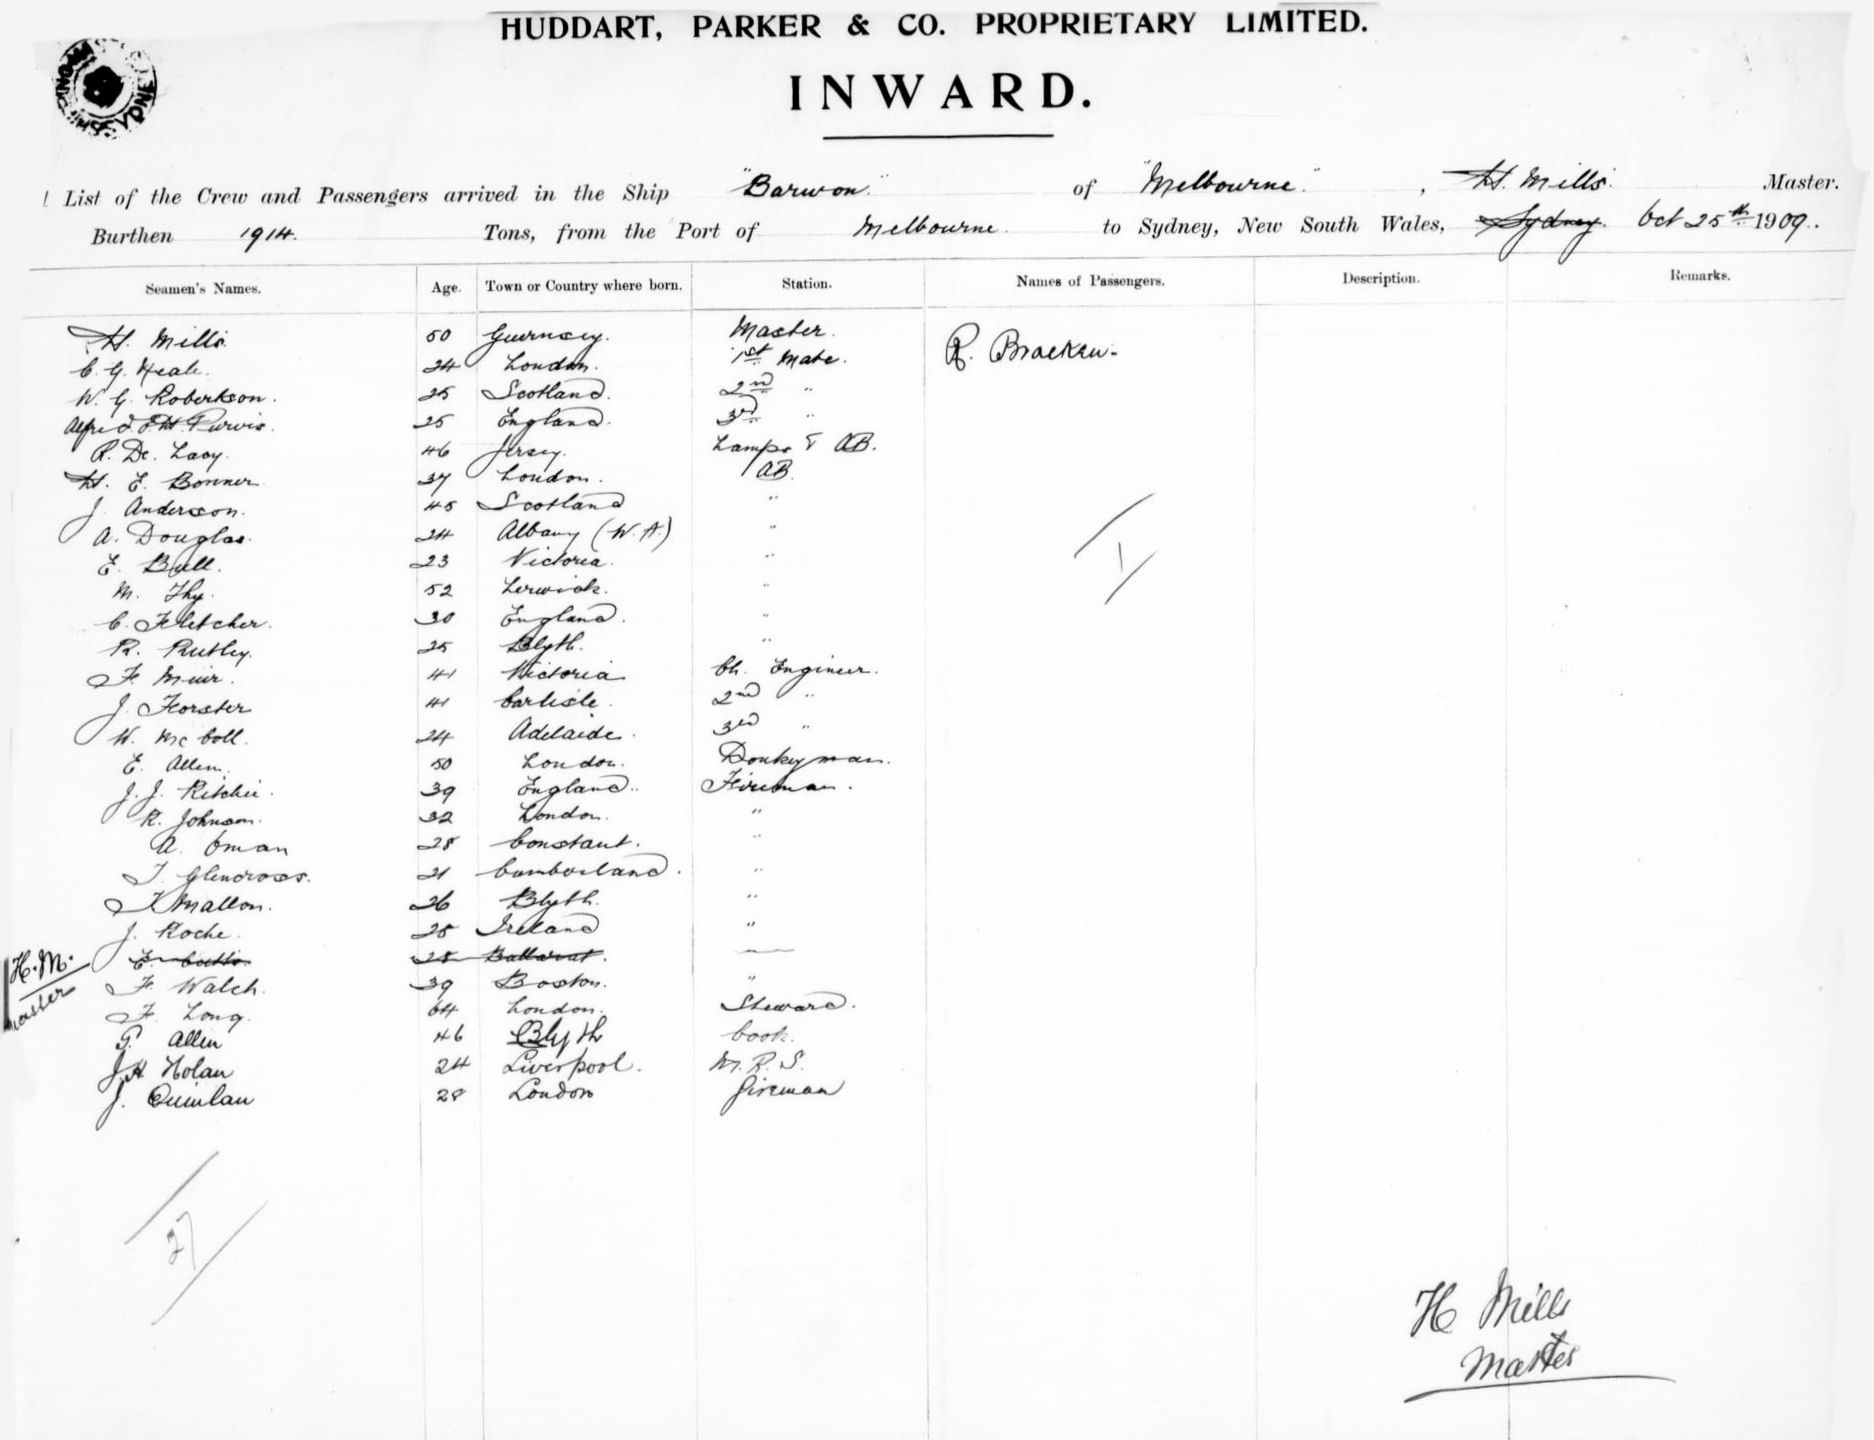 HUDDART, PARKER & CO. PROPRIETARY LIMITED.
INWARD.
List of the Crew and Passengers arrived in the Ship "Barwon" of "Melbourne", H. Mills. Master.
Burthen 1914. Tons, from the Port of Melbourne. to Sydney, New South Wales, Sydney. Oct 25th 1909.
Seamen's Names. Age. Town or Country where born. Station. Names of Passengers. Description. Remarks.
H. Mills. 50 Guernsey. Master. R.
C. G. 24 London. 1st Mate.
W. G. Robertson. 25 Scotland. 2nd "
Alfred Purvis. 25 England. 3rd "
R. De. Lacy. 46 Jersey. Lamps & AB.
H. E. Bonner 37 London. AB.
J. Anderson. 45 Scotland "
A. Douglas. 24 Albany (W. A.) "
E. Bull. 23 Victoria. "
M. 52 Lerwick. "
C. Fletcher. 30 England. "
R. Rutley. 25 Blyth. "
F. Muir. 41 Victoria Ch. Engineer.
J. Forster 41 Carlisle. 2nd "
W. McColl. 24 Adelaide. 3rd "
E. Allen. 50 London. Donkeyman.
J. J. Ritchie. 39 England. Fireman.
R. Johnson. 32 London. "
A. Oman 28 Constant. "
T. Glencross. 21 Cumberland. "
Mallon. 26 Blyth. "
J. Roche. 25 Ireland "
E. Cutts. 25 Ballarat.
H.M. Master
F. Walch. 39 Boston. "
F. Long. 64 London. Steward.
G. Allen 46 Blyth Cook.
J. H. Nolan 24 Liverpool. M. R. S.
J. Quinlan 28 London Fireman
1
27
H Mills
Master